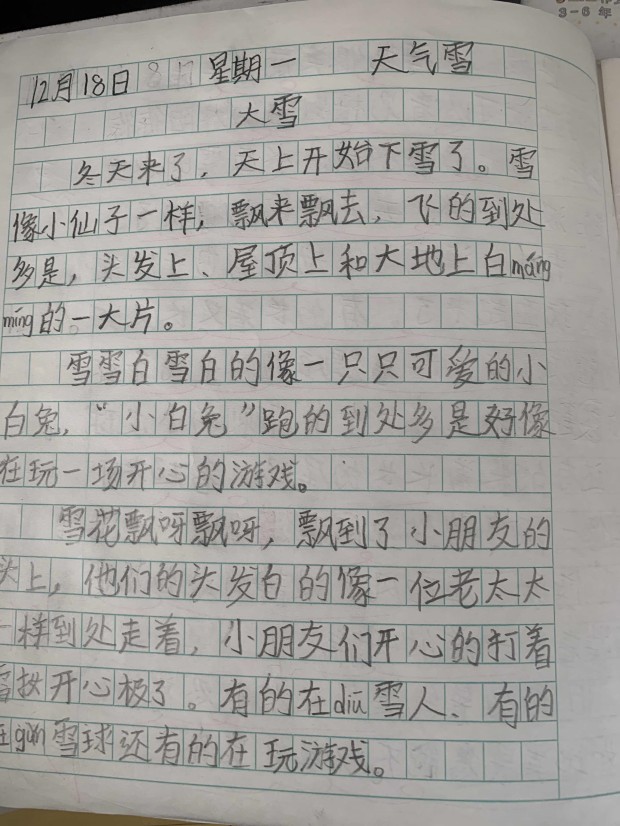 3-6年
12月18日 星期一 天气雪
大雪
冬天来了，天上开始下雪了。雪
像小仙子一样，飘来飘去，飞的到处
多是，头发上、屋顶上和大地上白máng
míng的一大片。
雪雪白雪白的像一只只可爱的小
白兔，“小白兔”跑的到处多是好像
在玩一场开心的游戏。
雪花飘呀飘呀，飘到了小朋友的
头上，他们的头发白的像一位老太太
一样到处走着，小朋友们开心的打着
雪扙开心极了。有的在diū雪人、有的
在gǔn雪球还有的在玩游戏。